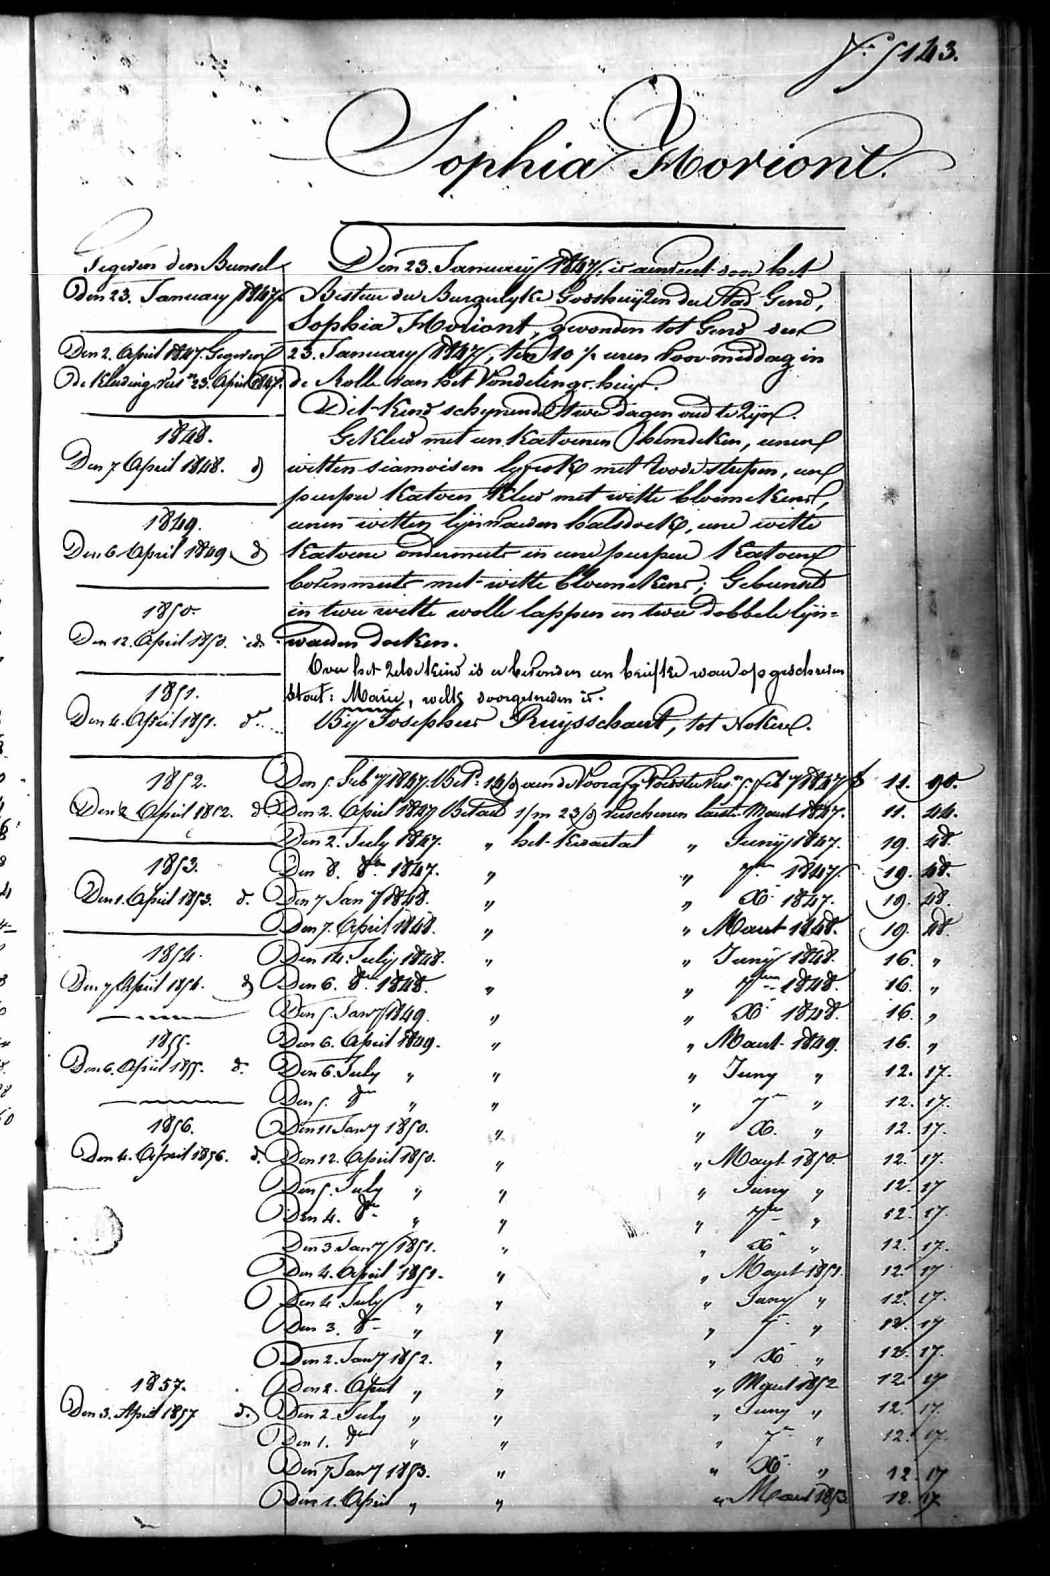 N.° 5143.
Sophia Horiont.
Gegeven den Bunsel
den 23. January 1847.
Den 2. April 1847. Gegeven
de kleeding rec.n 23. April 1847.
1848.
Den 7 April 1848. d
1849.
Den 6 April 1849 d
1850.
Den 12. April 1850. id.
1851.
Den 4. April 1851. d.°
1852.
Den 2 April 1852. d
1853.
Den 1. April 1853. d.
1854.
Den 7 April 1854. d
1855.
Den 6. April 1855. d.
1856.
Den 4. April 1856. d.
1857.
Den 3. April 1857 d.
Den 23. January 1847. is aenveert door het
Bestuer der Burgerlyke Godshuijzen der Stad Gend,
Sophia Horiont, gevonden tot Gend den
23. January 1847, ten 10 ½ uren voormiddag in
de Rolle van het Vondelings-huijs.
Dit Kind schynende twee dagen oud te Zyn.
Gekleed met een Katoenen hemdeken, eenen
witten siamoisen lyfrok met roode strepen, een
purper Katoen Kleed met witte bloemekens,
eenen witten lijnwaeden halsdoek, eene witte
Katoene ondermuts en eene purper Katoene
bovenmuts met witte bloemekens; Gebunseld
in twee witte wolle lappen en twee dobbele lijn=
waeden doeken.
Over het Zelve Kind is er bevonden een briefke waer op geschreven
staet: Marie, welk doorgesneden is.
Bij Josephus Ruijsschaert, tot Nokere.
Den 5. Feb.y 1847. Bet.d 1 6/9 aen de Voorafg. Voedster rec.n 5. feb.y 1847 f 11. 90.
Den 2. April 1847 Betaelt 1/m 23/9 verschenen laeste Maert 1847. 11. 44.
Den 2. July 1847. " het Kwartael " Junij 1847. 19. 48.
Den 8. 8.bre 1847. " " 7.bre 1847. 19. 48.
Den 7 Jan.y 1848. " " X.e 1847. 19. 48.
Den 7. April 1848. " " Maert 1848. 19. 48.
Den 14. July 1848. " " Junij 1848. 16. "
Den 6. 8.bre 1848. " " 7.bre 1848. 16. "
Den 5. Jan.y 1849. " " X.e 1848. 16. "
Den 6. April 1849. " " Maert 1849. 16. "
Den 6. July " " " Juny " 12. 17.
Den 5. 8.bre " " " 7.bre " 12. 17.
Den 11 Jan.y 1850. " " X. " 12. 17.
Den 12. April 1850. " " Maert 1850. 12. 17.
Den 5. July " " " Juny " 12. 17
Den 4. 8.bre " " " 7.bre " 12. 17.
Den 3 Jan.y 1851. " " X.e " 12. 17.
Den 4. April 1851. " " Maert 1851. 12. 17
Den 4. July " " " Juny " 12. 17.
Den 3. 8.bre " " " 7.bre " 12. 17
Den 2. Jan.y 1852. " " X " 12. 17.
Den 2. April " " " Maert 1852 12. 17
Den 2. July " " " Juny " 12. 17.
Den 1. 8.bre " " " 7.bre " 12. 17.
Den 7 Jan.y 1853. " " X.e " 12. 17
Den 1. April " " " Maert 1853 12. 17